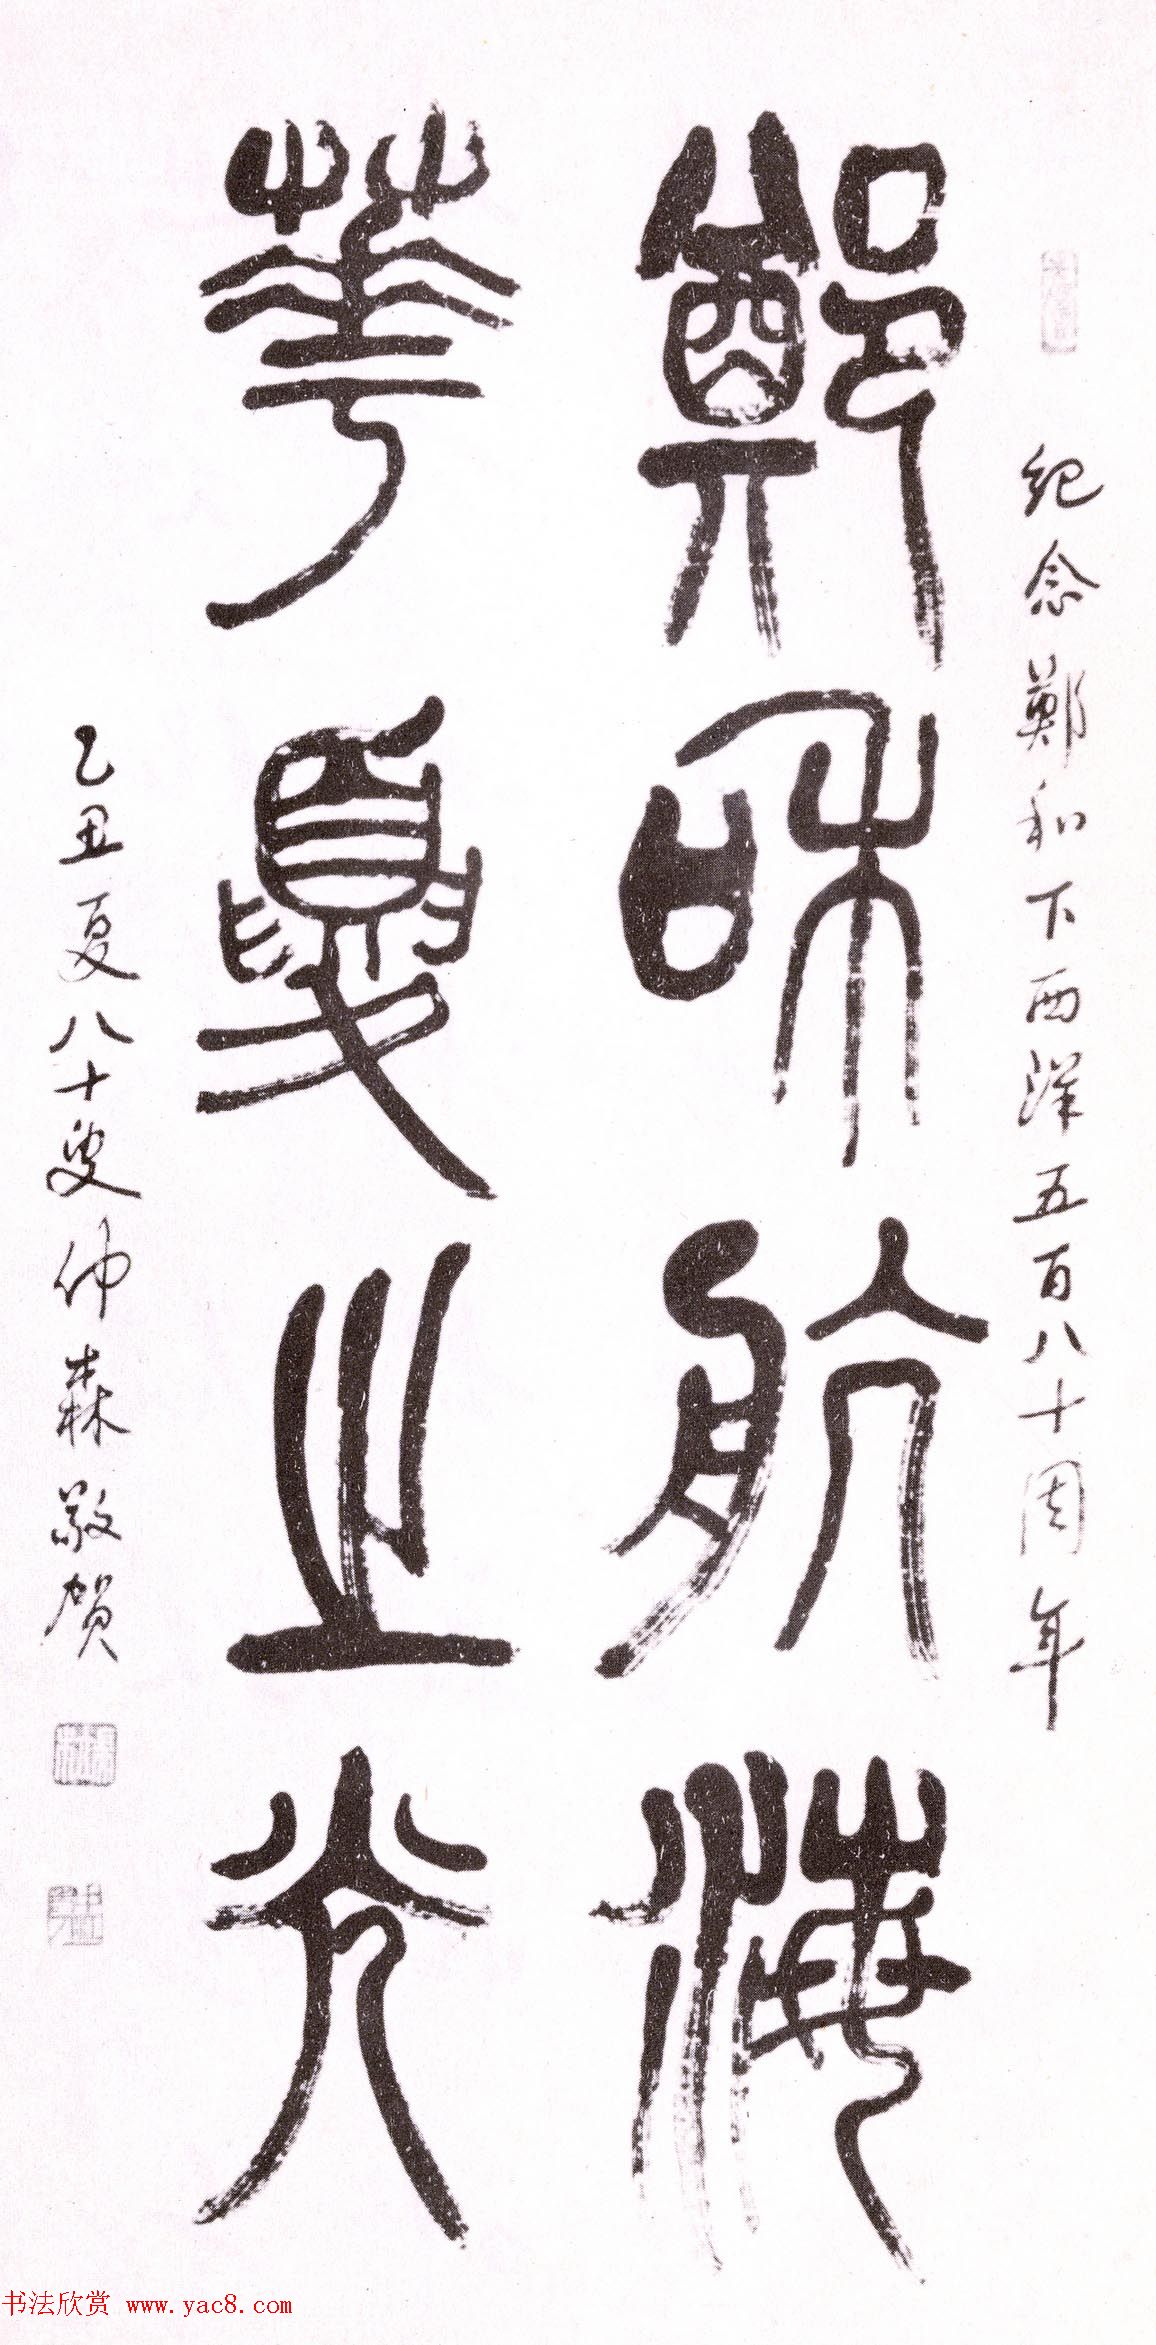 紀念鄭和下西洋五百八十周年
鄭和航海
華夏之光
乙丑夏八十叟仲森敬賀
书法欣赏 www.yac8.com